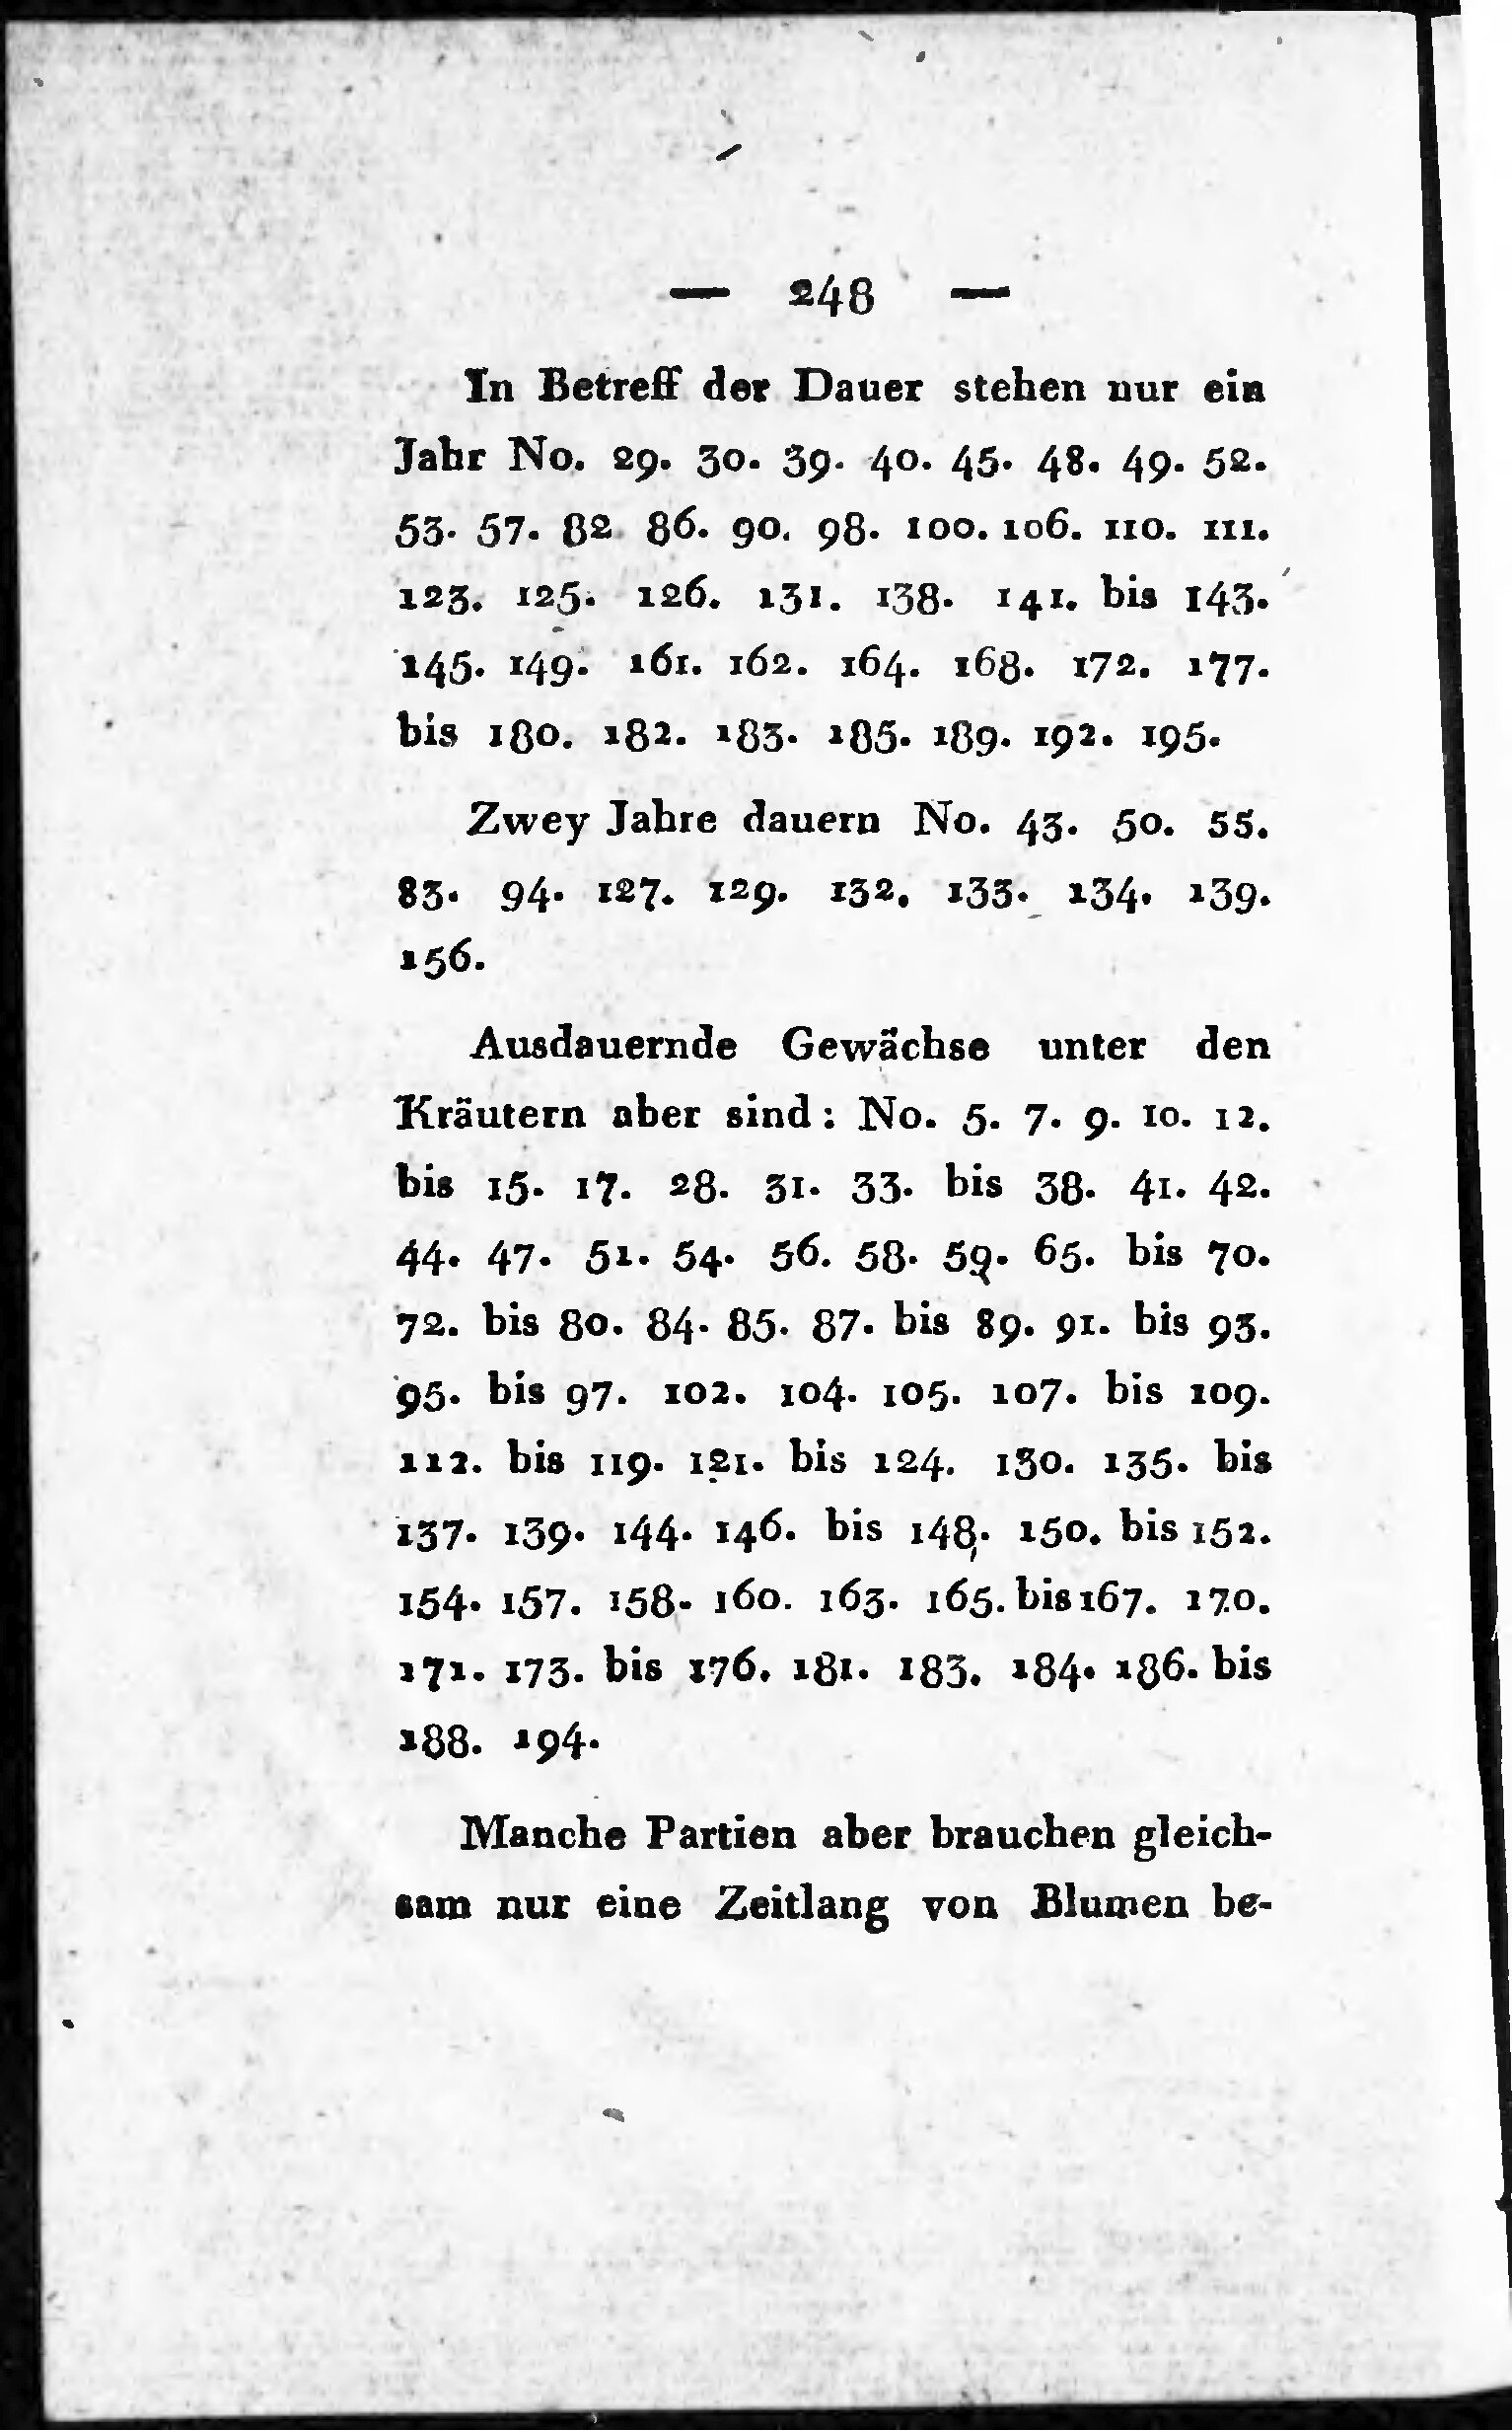 — 248 —
In Betreff der Dauer stehen nur ein
Jahr No. 29. 30. 39. 40. 45. 48. 49. 52.
53. 57. 82 86. 90. 98. 100. 106. 110. 111.
123. 125. 126. 131. 138. 141. bis 143.
145. 149. 161. 162. 164. 168. 172. 177.
bis 180. 182. 183. 185. 189. 192. 195.
Zwey Jahre dauern No. 43. 50. 55.
83. 94. 127. 129. 132. 133. 134. 139.
156.
Ausdauernde Gewächse unter den
Kräutern aber sind: No. 5. 7. 9. 10. 12.
bis 15. 17. 28. 31. 33. bis 38. 41. 42.
44. 47. 51. 54. 56. 58. 59. 65. bis 70.
72. bis 80. 84. 85. 87. bis 89. 91. bis 93.
95. bis 97. 102. 104. 105. 107. bis 109.
112. bis 119. 121. bis 124. 130. 135. bis
137. 139. 144. 146. bis 148. 150. bis 152.
154. 157. 158. 160. 163. 165. bis 167. 170.
171. 173. bis 176. 181. 183. 184. 186. bis
188. 194.
Manche Partien aber brauchen gleich-
sam nur eine Zeitlang von Blumen be-